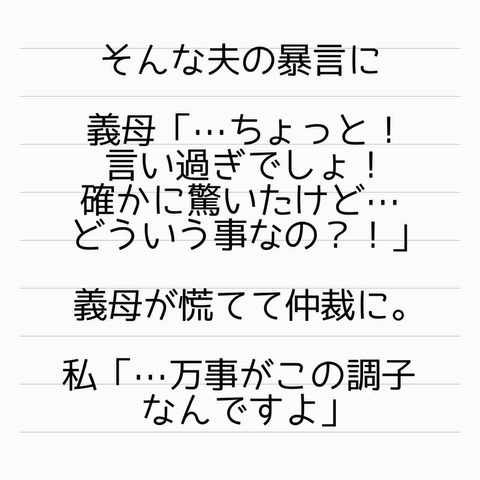 そんな夫の暴言に
義母「…ちょっと！
言い過ぎでしょ！
確かに驚いたけど…
どういう事なの？！」
義母が慌てて仲裁に。
私「…万事がこの調子
なんですよ」